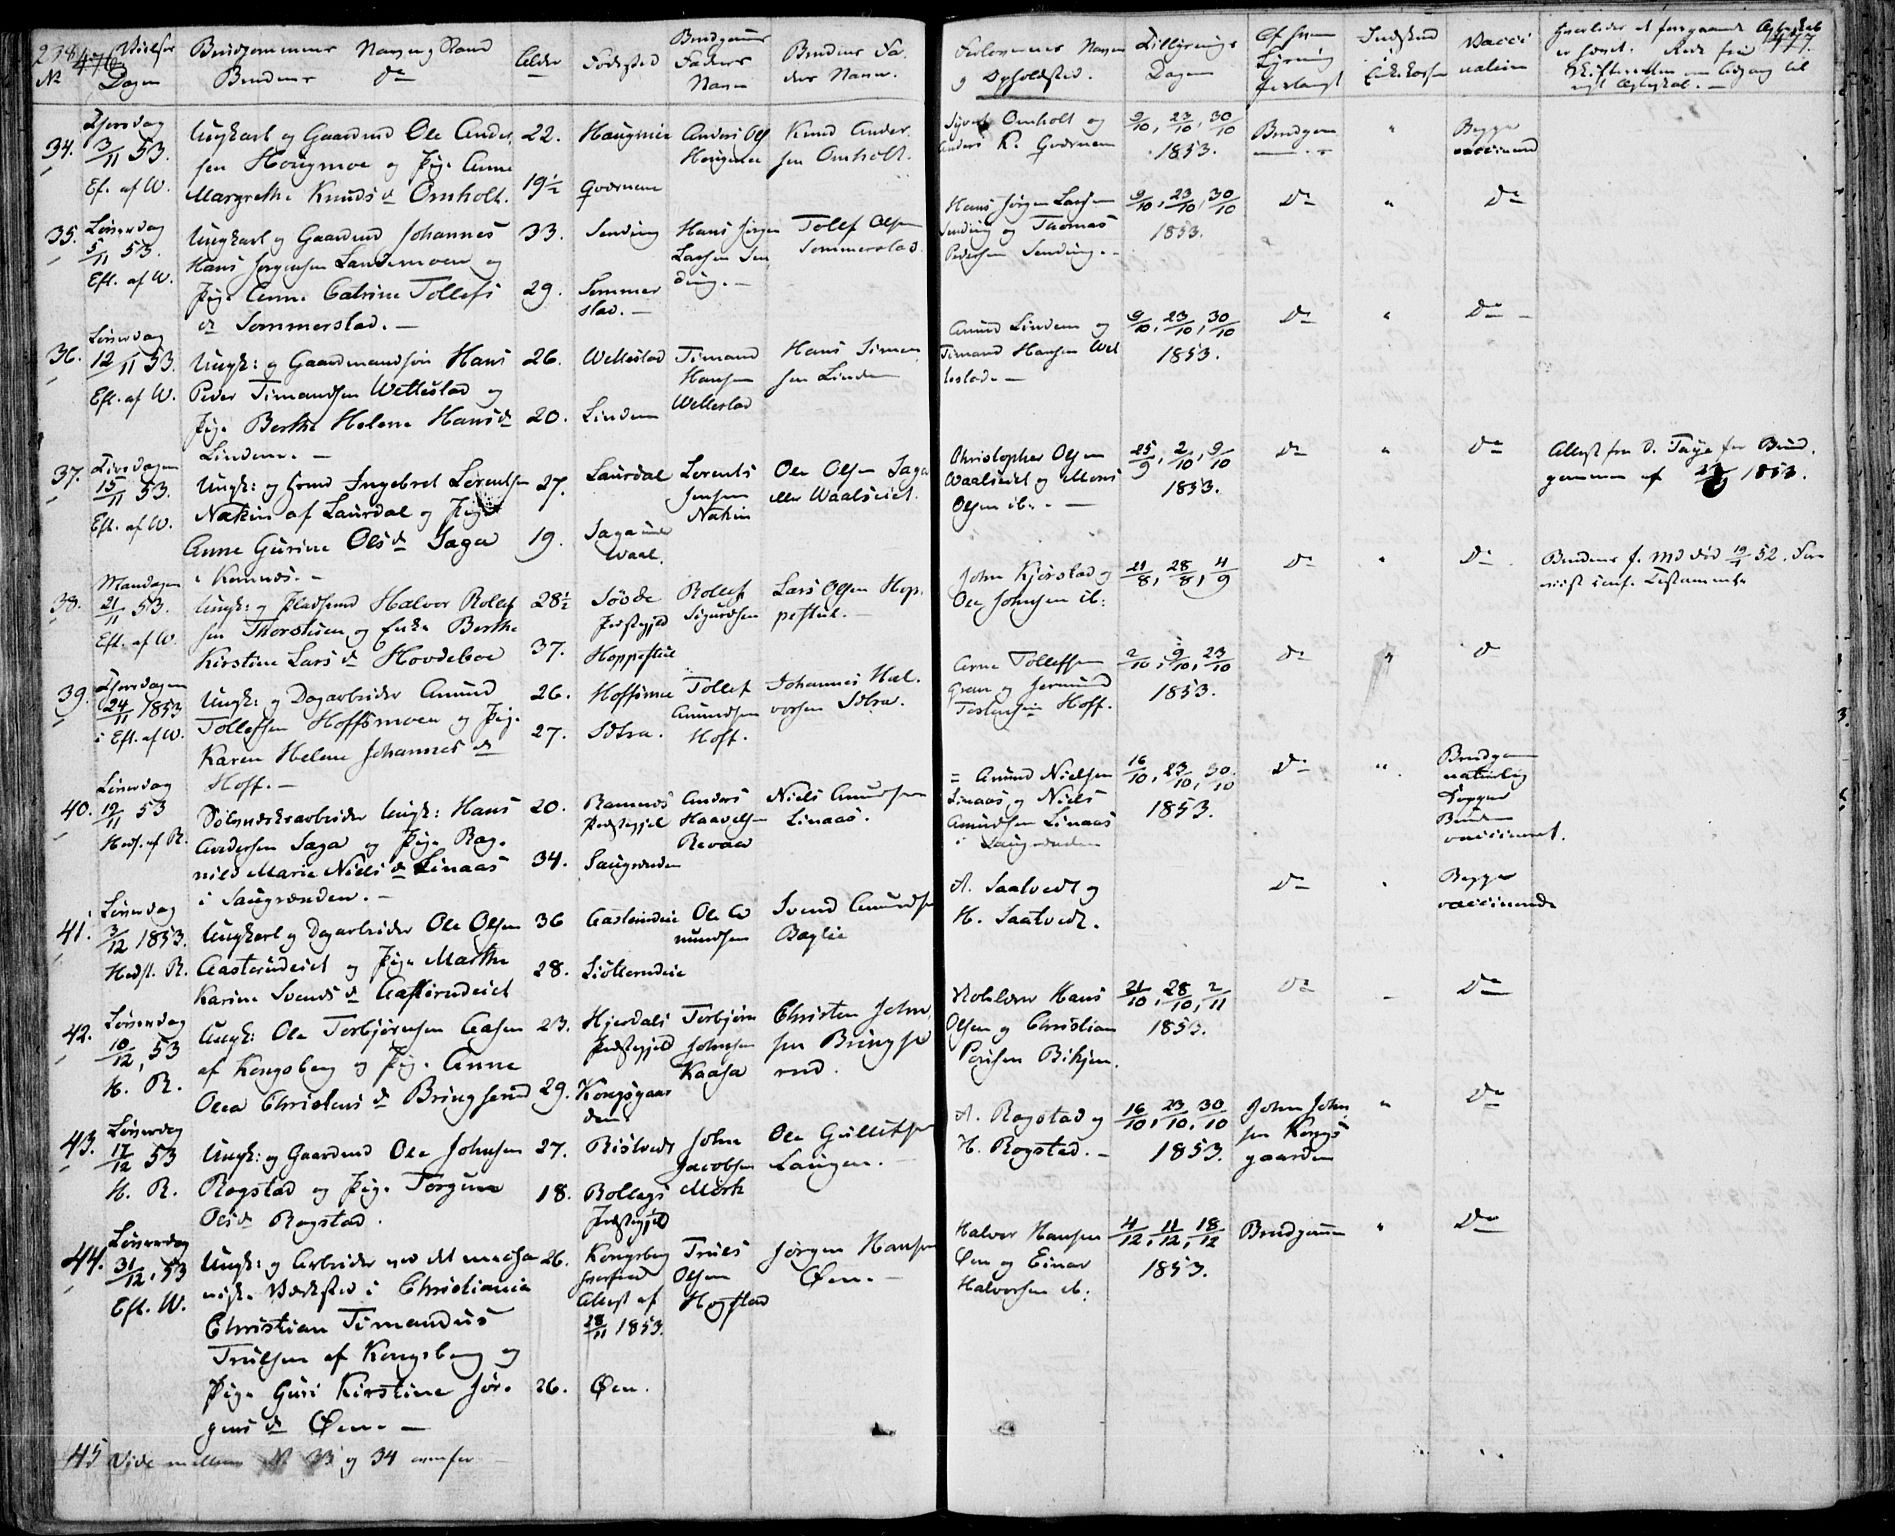 238 476
No
Vielses Dagen
Brudgommens Navn og Stand
Brudens do
Alder
Fødested
Brudgoms Faders Navn
Brudens Faders Navn.
Forlovernes Navne og Opholdsted.
Tillysnings Dagen
Af hvem Lysning forlangt
Indskud Enkekassen
Vaccination
477.
34.
Torsdag
3/11 53.
Ef. af W.
Ungkarl og Gaardmd Ole Anders
sen Hougmoe og Pige Anne
Margrethe Knuds d Omholt.
22.
19½
Haugmoe
Anders Ols
Hougmoe
Knud Anders
sen Omholt.
Omholt og
Anders K.
9/10, 23/10, 30/10
1853.
Brudgom
"
Begge
vaccinered
35.
Løverdag
5/11 53.
Eft. af W.
Ungkarl og Gaardmd Johannes
Hans Jørgensen Landemoen og
Pige Anne Catrine Tollefs
d Sommerstad.
33.
29.
Sending
Sommerstad.
Hans Jørgen
Larsen Sending.
Tollef Olsen
Sommerstad.
Hans Jørgen Larsen
Sending og Thomas
Pedersen Sending.
9/10, 23/10, 30/10
1853.
Do
"
Do
36.
Løverdag
12/11 53.
Eft. af W.
Ungk: og Gaardmandsøn Hans
Peder Timandsen Wettestad og
Pige Berthe Helene Hansd
Lindem.
26.
20.
Wettestad
Lindem
Timand
Hansen
Wettestad
Hans Simensen Lindem
Amund Lindem og
Timand Hansen Wettestad.
9/10, 23/10, 30/10
1853.
Do
"
Do
37.
Tirsdagen
15/11 53.
Eft. af W.
Ungk: og Ingebret Lorentsen
Nakin af Laurdal og Pige
Anne Gurine Olsd Saga
i Komnæs.
27.
19.
Laurdal
Saga under
Waal.
Lorents
Jensen
Nakin
Ole Olsen Saga
eller Waalseiet.
Christopher Olsen
Waalseiet og Mons
Olsen ib.
25/9, 2/10, 9/10
1853.
Do
"
Do
Attest fra D. Taye for Brudgommen af 1853.
38.
Mandagen
21/11 53.
Eft. af W.
Ungk: og Pladsemd Halvor Rollefsen Thorstuen og Enke Berthe
Kirstine Lars d Hovdeboe
28½
37.
Søvde
Præstegjeld
Hoppestul
Rollef
Sigurdsen
Lars Olsen Hoppestul.
John Kjørstad og
Ole Johnsen ib:
21/8, 28/8, 4/9
Do
"
Do
Brudens f. Md død 19/1 52.
39.
Torsdagen
24/11 1853
Eft. af W.
Ungk: og Dagarbeider Amund
Tollefsen Hoffsmoen og Pige
Karen Helene Johannes d
Hoff.
26.
27.
Hoffsmoe
Sætra.
Tollef
Amundsen
Hoff.
Johannes Halvorsen Sætra.
Arne Tollefsen
Gren og Jermund
Torstensen Hoff.
2/10, 9/10, 23/10
1853.
Do
"
D
40.
Løverdag
19/11 53
Heds. af R.
Sølvverksarbeider Ungk: Hans
Andersen Saga og Pige Ragnild Marie Niels d Linaas
i Saugrenden.
20.
34.
Ramnæs
Præstegjel
Saugrenden
Anders
Haavelsen
Revaa
Niels Amundsen
Linaas.
Amund Nielsen
Linaas og Niels
Amundsen Linaas
i Saugrenden
16/10, 23/10, 30/10
1853.
Do
"
Brudgom
naturlig
Kopper
Bruden
vaccineret.
41.
Løverdag
3/12 1853.
Heds. R.
Ungkarl og Dagarbeider Ole Olsen
Aasterudeiet og Pige Marthe
Karine Svends d Aasterudeiet
36
28.
Aasterudeie
Ole Amundsen
Svend Amundsen
Baglie
A. Saatvedt og
H. Saatvedt.
Do
Begge
vaccinerede
42.
Løverdag
10/12, 53
H. R.
Ungk: Ole Torbjørnsen Aasen
af Kongsberg og Pige Anne
Olea Christens d Bringserud
23.
29.
Hjerdals
Præstegjeld
Kongsgaarden
Torbjørn
Johnsen
Kaasa
Christen Johnsen Bringserud.
Hans
Olsen og Christian
Povlsen Bikjen.
21/10, 28/10, 2/11
1853.
Do
Do
43.
Løverdag
17/12 53
H. R.
Ungk: og Gaardmd Ole Johnsen
Rogstad og Pige Torgun
Olsd Rogstad.
27.
18.
Ristvedt
Rollags
Præstegjeld
John
Jacobsen
Mørk
Ole Gullutsen
Laugen.
A. Rogstad og
H. Rogstad.
16/10, 23/10, 30/10
1853.
John Johnsen Kongsgaarden
"
Do
44.
Løverdag
31/12, 53
Eft. W.
Ungk: og Arbeider ved det mechaniske Værksted i Christiania
Christian Timandus
Trulsen af Kongsberg og
Pige Guri Kirstine Jørgens d Øen.
26.
26.
Kongsberg
Attest af
28/11 1853.
Øen.
Truls
Olsen
Hogstad
Jørgen Hansen
Øen.
Halvor Hansen
Øen og Einar
Halvorsen ib:
4/12, 11/12, 18/12
1853.
Brudgommen
"
Do
45
Vide mellem No 33 og 34 ovenfor